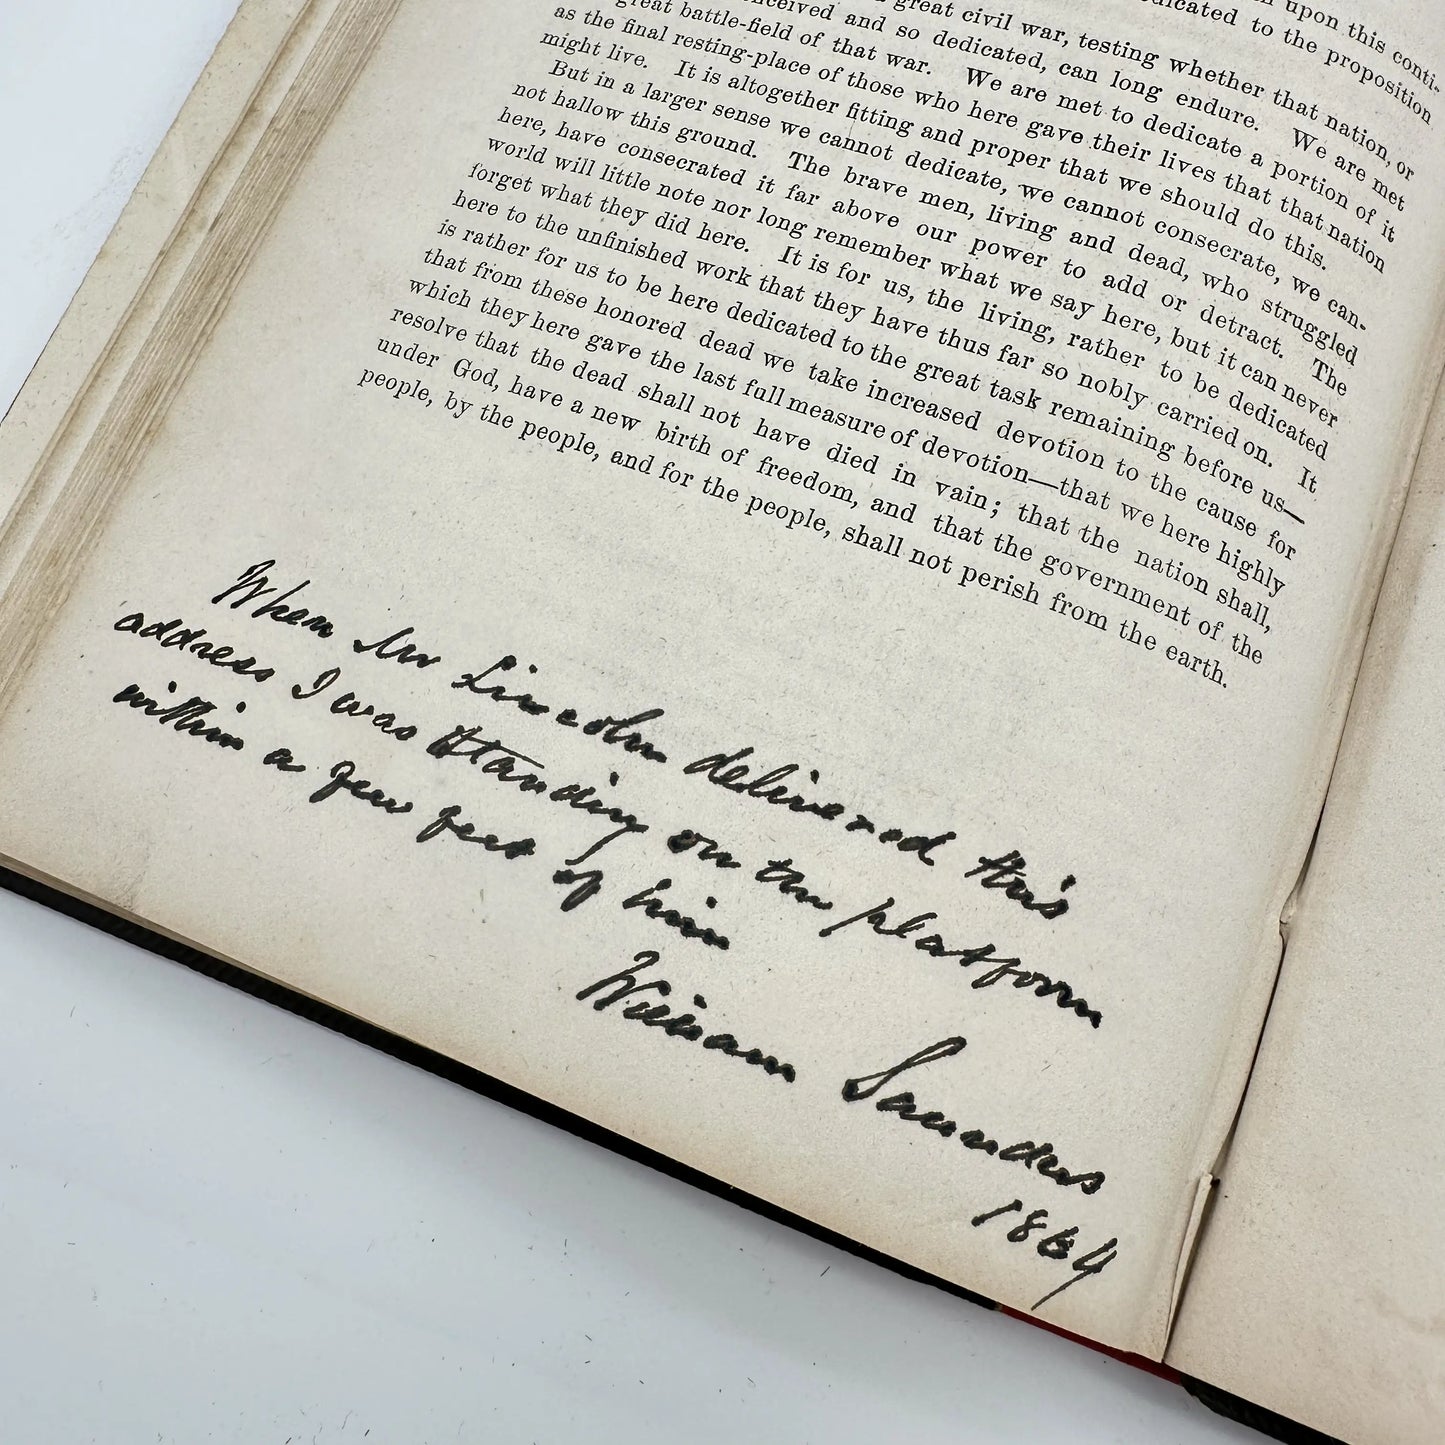 upon this conti-
to the proposition
great civil war, testing whether that nation, or
and so dedicated, can long endure. We are met
great battle-field of that war. We are met to dedicate a portion of it
as the final resting-place of those who here gave their lives that that nation
might live. It is altogether fitting and proper that we should do this.
But in a larger sense we cannot dedicate, we cannot consecrate, we can-
not hallow this ground. The brave men, living and dead, who struggled
here, have consecrated it far above our power to add or detract. The
world will little note nor long remember what we say here, but it can never
forget what they did here. It is for us, the living, rather to be dedicated
here to the unfinished work that they have thus far so nobly carried on. It
is rather for us to be here dedicated to the great task remaining before us—
that from these honored dead we take increased devotion to the cause for
which they here gave the last full measure of devotion—that we here highly
resolve that the dead shall not have died in vain; that the nation shall,
under God, have a new birth of freedom, and that the government of the
people, by the people, and for the people, shall not perish from the earth.
When Mr Lincoln delivered this
address I was standing on the platform
within a few feet of him
William Saunders
1864